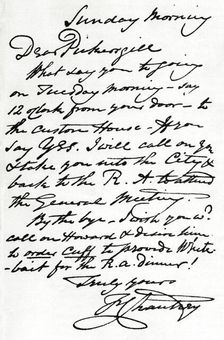 Sunday Morning
Dear Pickersgill
What say you to going
on Tuesday morning - say
12 oClock from your door - to
the Custom House - If you
say YES. I will call on you
& take you into the City &
back to the R. A. to attend
the General Meeting.
By the bye - I wish you wd.
call on Howard & desire him
to order Cuff to provide White-
bait for the R.A. dinner!
Truly yours
F Chantrey